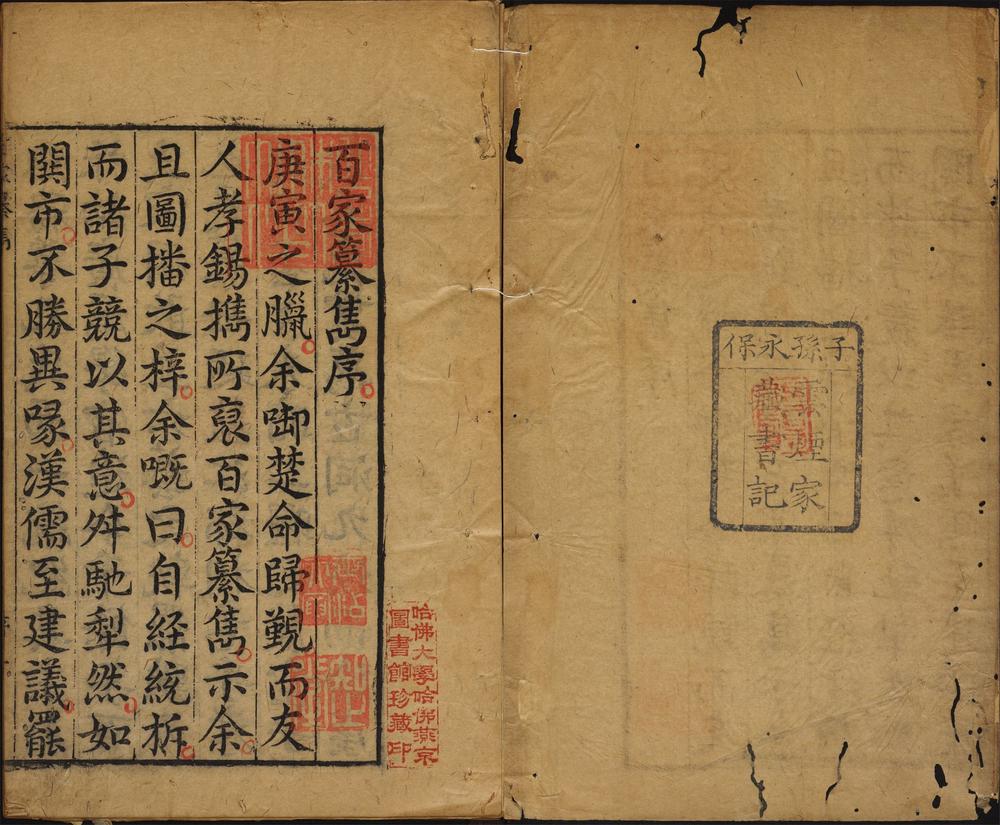 子孫永保
雲煙家
藏書記
哈佛大學哈佛燕京
圖書館珍藏印
百家纂雋序
庚寅之臘余啣楚命歸覲而友
人孝錫擕所裒百家纂雋示余
且圖播之梓余嘅曰自経統拆
而諸子競以其意舛馳犁然如
闤市不勝異喙漢儒至建議罷